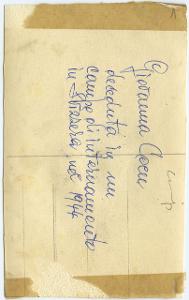 Giovanna Cocu
deceduta in un
campo di internamento
in Svizzera nel 1944